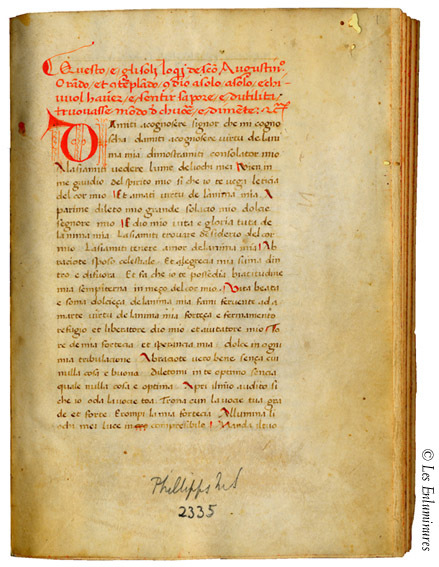 Questo e gli soli loqi de sco Augustino
orado et cteplado cdio a solo a solo e chi
vuol haver e sentir sapore e dutilita
truovasse modo d chuor e di mente
Damiti acognoscere signor che mi cogno
scha damiti acognoscere virtu de lani
ma mia dimostramiti consolator mio
Lasiami vedere lume deliochi mei Voien in
me gaudio del spirito mio si che io te vegi leticia
del cor mio Et amati virtu de lanima mia A
partime dileto mio grande solacio mio dolce
segnore mio Idio mio vita e gloria tuta de
lanima mia Lasiamiti trovare desiderio del cor
mio Lasiamiti tenere amor de lanima mia Ab
braciote sposo celestiale Et alegrecia mia suma din
tro e difuora Et fa che io te possedia beatitudine
mia sempiterna in mezo del cor mio Vita beata
e soma dolcieça de lanima mia fami fervente ad a
marte virtu de lanima mia forteça e fermamento
refugio et liberatore dio mio et aiutatore mio To
re de mia fortecia et sperancia mia dolce in ogni
mia tribulacione Abraciote vero bene sença cui
nulla cosa e buona Diletomi in te optimo sencia
quale nulla cosa e optima Apri ilmio audito si
che io oda la vocie toa Trona cun la vocie tua gra
de et forte Et compi la mia fortecia Allumina li
ochi mei luce incompressibile Manda il tuo
Phillipps MS
2335
© Les Enluminures